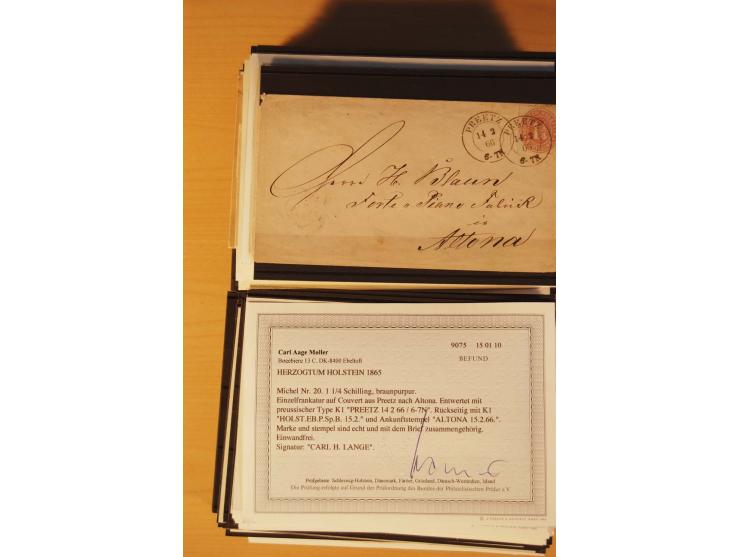 PREETZ
14 2
66
6-7N
PREETZ
14 2
66
6-7N
Herrn H. Blaun
Forte o Piano Fabrik
in
Altona
Carl Aage Møller
9075 15 01 10
DK-8400 Ebeltoft
BEFUND
HERZOGTUM HOLSTEIN 1865
Michel Nr. 20. 1 1/4 Schilling, braunpurpur.
Einzelfrankatur auf Couvert aus Preetz nach Altona. Entwertet mit
preussischer Type K1 "PREETZ 14 2 66 / 6-7N". Rückseitig mit K1
"HOLST.EB.P.Sp.B. 15.2." und Ankunftstempel "ALTONA 15.2.66.".
Marke und stempel sind echt und mit dem Brief zusammengehörig.
Einwandfrei.
Signatur: "CARL H. LANGE".
Prüfgebiete: Schleswig-Holstein, Dänemark, Färöer, Grönland, Dänisch-Westindien, Island
Die Prüfung erfolgte auf Grund der Prüfordnung des Bundes der Philatelistischen Prüfer e.V.